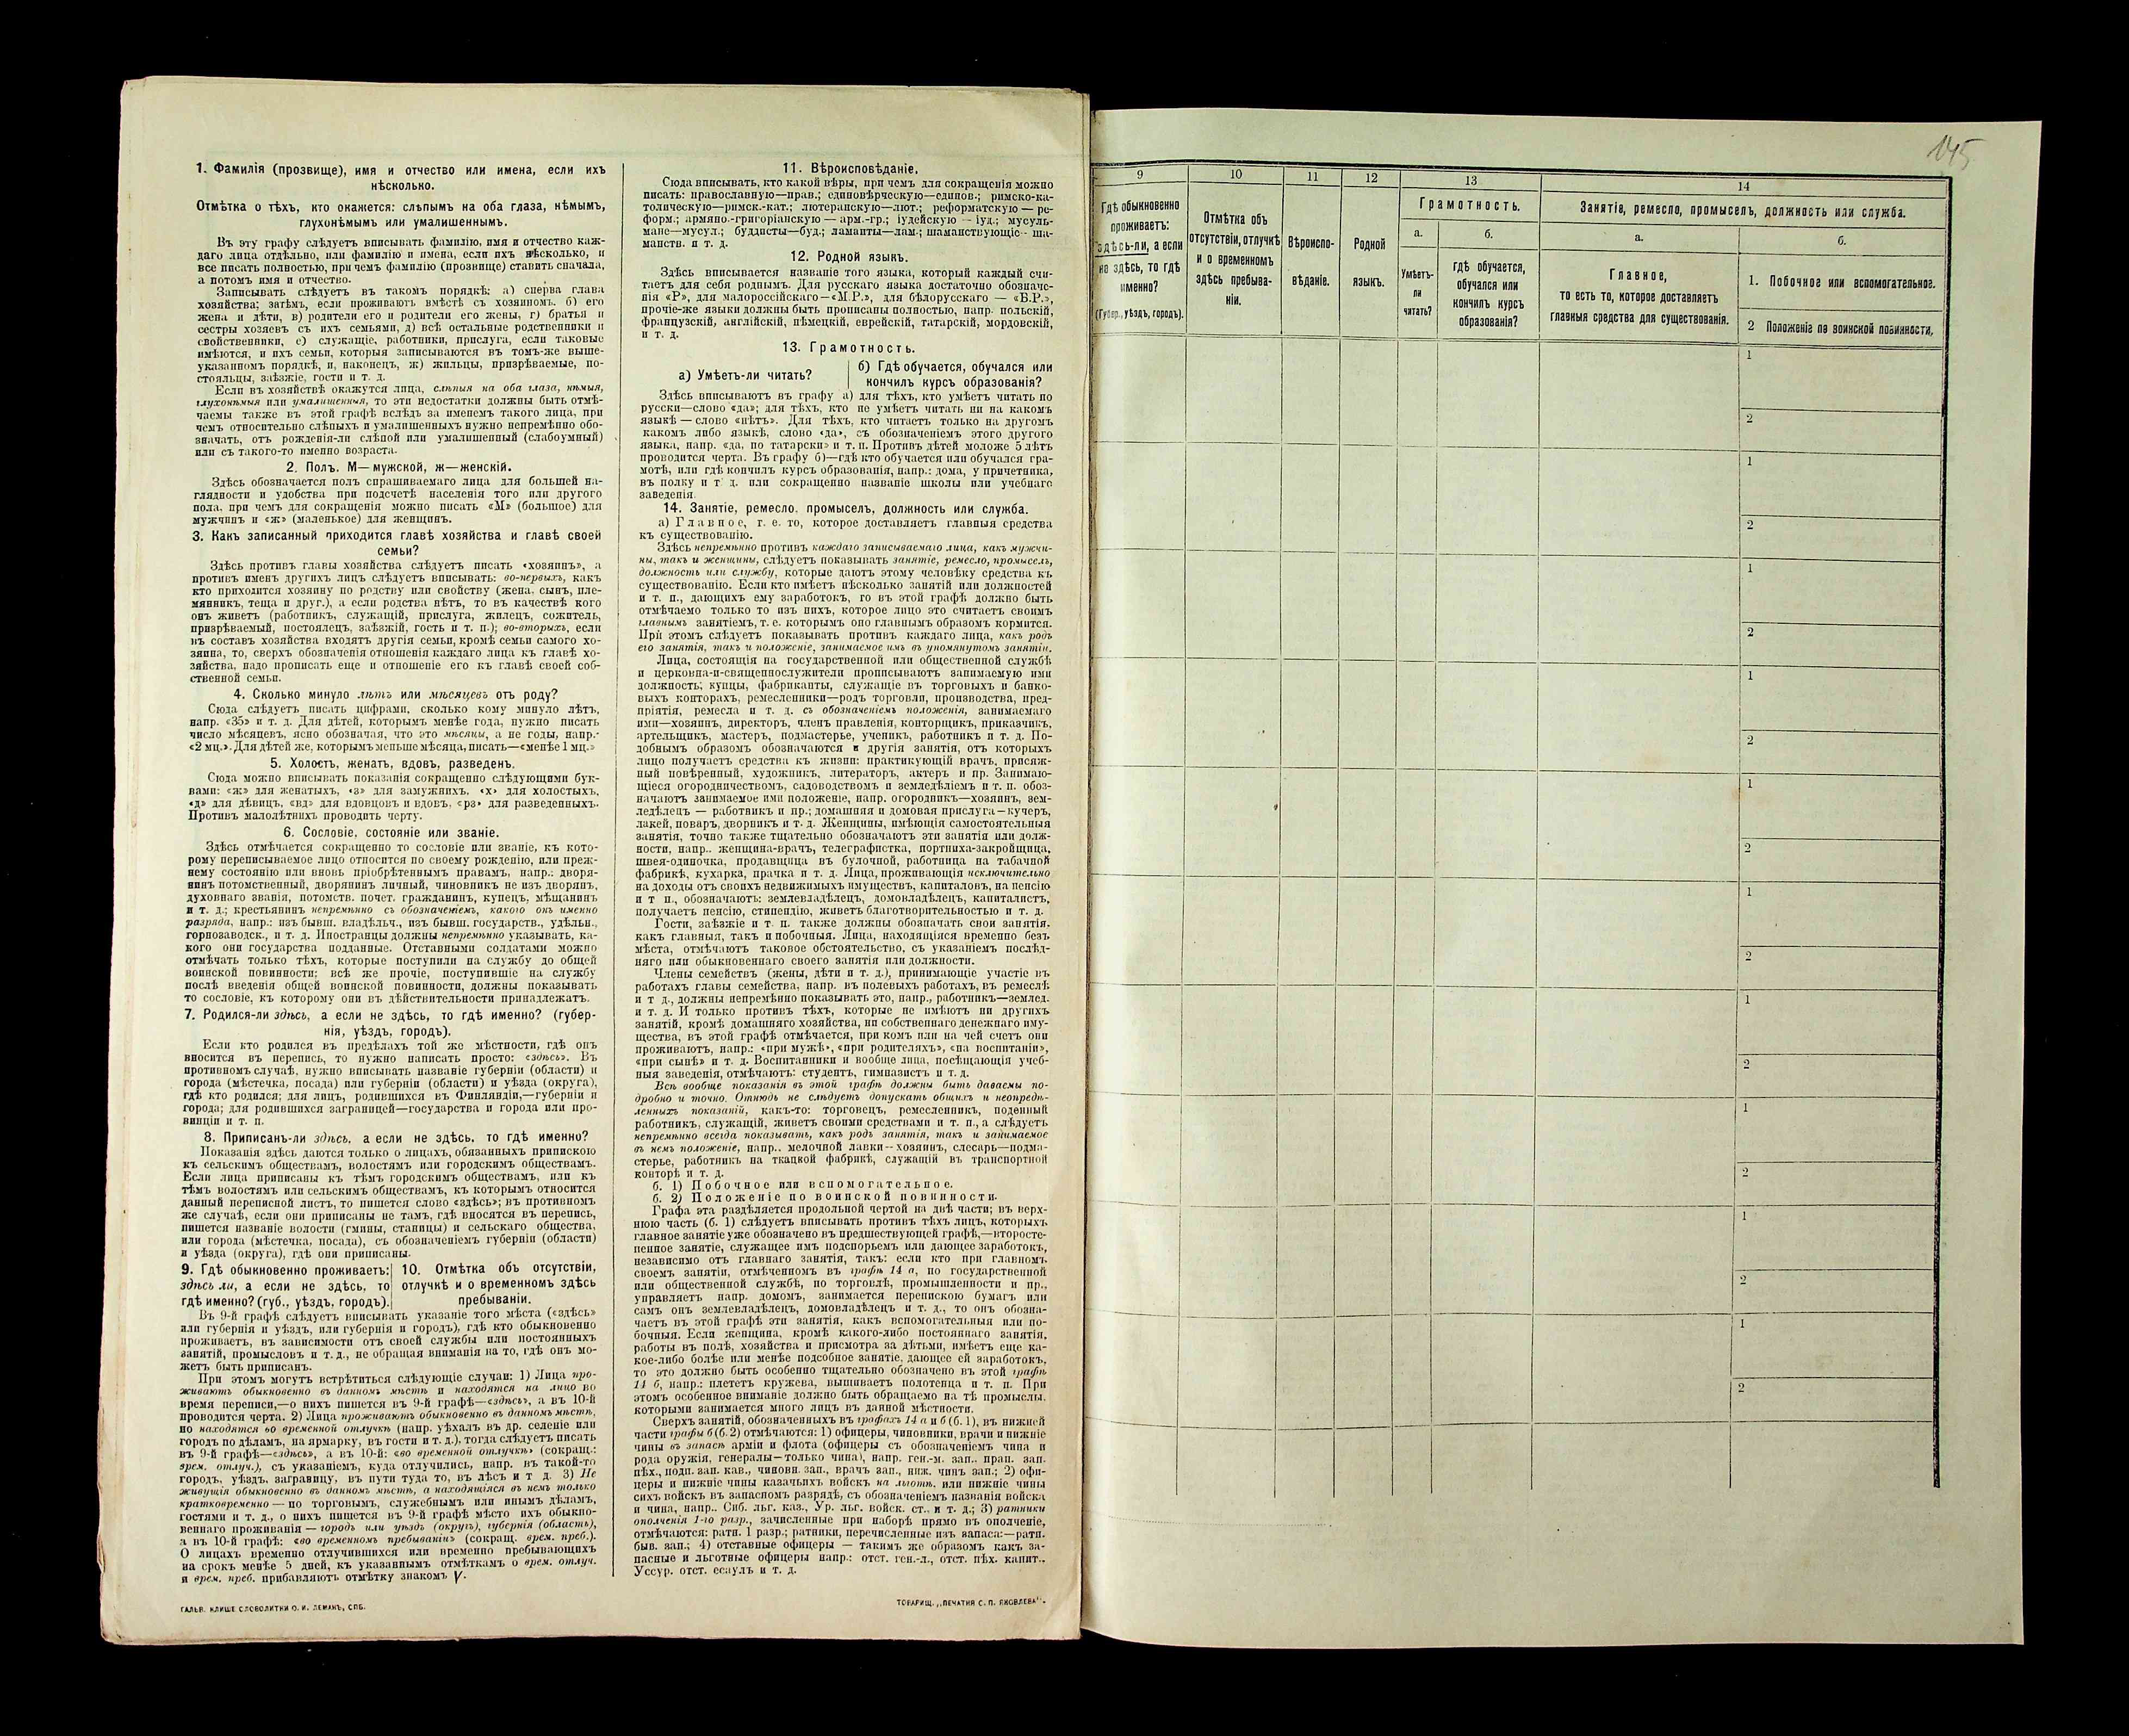 1. Фамилія (прозвище), имя и отчество или имена, если ихъ
нѣсколько.
Отмѣтка о тѣхъ, кто окажется: слѣпымъ на оба глаза, нѣмымъ,
глухонѣмымъ или умалишеннымъ.
Въ эту графу слѣдуетъ вписывать фамилію, имя и отчество каж-
даго лица отдѣльно, или фамилію и имена, если ихъ нѣсколько, и
все писать полностью, при чемъ фамилію (прозвище) ставить сначала,
а потомъ имя и отчество.
Записывать слѣдуетъ въ такомъ порядкѣ: а) сперва глава
хозяйства; затѣмъ, если проживаютъ вмѣстѣ съ хозяиномъ. б) его
жена и дѣти, в) родители его и родители его жены, г) братья и
сестры хозяевъ съ ихъ семьями, д) всѣ остальные родственники и
свойственники, е) служащіе, работники, прислуга, если таковые
имѣются, и ихъ семьи, которыя записываются въ томъ-же выше-
указанномъ порядкѣ, и, наконецъ, ж) жильцы, призрѣваемые, по-
стояльцы, заѣзжіе, гости и т. д.
Если въ хозяйствѣ окажутся лица, слѣпыя на оба глаза, нѣмыя,
глухонѣмыя или умалишенныя, то эти недостатки должны быть отмѣ-
чаемы также въ этой графѣ вслѣдъ за именемъ такого лица, при
чемъ относительно слѣпыхъ и умалишенныхъ нужно непремѣнно обо-
значать, отъ рожденія-ли слѣпой или умалишенный (слабоумный)
или съ такого-то именно возраста.
2. Полъ. М—мужской, ж—женскій.
Здѣсь обозначается полъ спрашиваемаго лица для большей на-
глядности и удобства при подсчетѣ населенія того или другого
пола, при чемъ для сокращенія можно писать «М» (большое) для
мужчинъ и «ж» (маленькое) для женщинъ.
3. Какъ записанный приходится главѣ хозяйства и главѣ своей
семьи?
Здѣсь противъ главы хозяйства слѣдуетъ писать «хозяинъ», а
противъ именъ другихъ лицъ слѣдуетъ вписывать: во-первыхъ, какъ
кто приходится хозяину по родству или свойству (жена, сынъ, пле-
мянникъ, теща и друг.), а если родства нѣтъ, то въ качествѣ кого
онъ живетъ (работникъ, служащій, прислуга, жилецъ, сожитель,
призрѣваемый, постоялецъ, заѣзжій, гость и т. п.); во-вторыхъ, если
въ составъ хозяйства входятъ другія семьи, кромѣ семьи самого хо-
зяина, то, сверхъ обозначенія отношенія каждаго лица къ главѣ хо-
зяйства, надо прописать еще и отношеніе его къ главѣ своей соб-
ственной семьи.
4. Сколько минуло лѣтъ или мѣсяцевъ отъ роду?
Сюда слѣдуетъ писать цифрами, сколько кому минуло лѣтъ,
напр. «35» и т. д. Для дѣтей, которымъ менѣе года, нужно писать
число мѣсяцевъ, ясно обозначая, что это мѣсяцы, а не годы, напр.·
«2 мц.». Для дѣтей же, которымъ меньше мѣсяца, писать—«менѣе 1 мц.»
5. Холостъ, женатъ, вдовъ, разведенъ.
Сюда можно вписывать показанія сокращенно слѣдующими бук-
вами: «ж» для женатыхъ, «з» для замужнихъ, «х» для холостыхъ,
«д» для дѣвицъ, «вд» для вдовцовъ и вдовъ, «рз» для разведенныхъ.
Противъ малолѣтнихъ проводить черту.
6. Сословіе, состояніе или званіе.
Здѣсь отмѣчается сокращенно то сословіе или званіе, къ кото-
рому переписываемое лицо относится по своему рожденію, или преж-
нему состоянію или вновь пріобрѣтеннымъ правамъ, напр.: дворя-
нинъ потомственный, дворянинъ личный, чиновникъ не изъ дворянъ,
духовнаго званія, потомств. почет. гражданинъ, купецъ, мѣщанинъ
и т. д.; крестьянинъ непремѣнно съ обозначеніемъ, какого онъ именно
разряда, напр.: изъ бывш. владѣльч., изъ бывш. государств., удѣльн.,
горнозаводск., и т. д. Иностранцы должны непремѣнно указывать, ка-
кого они государства подданные. Отставными солдатами можно
отмѣчать только тѣхъ, которые поступили на службу до общей
воинской повинности; всѣ же прочіе, поступившіе на службу
послѣ введенія общей воинской повинности, должны показывать
то сословіе, къ которому они въ дѣйствительности принадлежатъ.
7. Родился-ли здѣсь, а если не здѣсь, то гдѣ именно? (губер-
нія, уѣздъ, городъ).
Если кто родился въ предѣлахъ той же мѣстности, гдѣ онъ
вносится въ перепись, то нужно написать просто: «здѣсь». Въ
противномъ случаѣ, нужно вписывать названіе губерніи (области) и
города (мѣстечка, посада) или губерніи (области) и уѣзда (округа),
гдѣ кто родился; для лицъ, родившихся въ Финляндіи,—губерніи и
города; для родившихся заграницей—государства и города или про-
винціи и т. п.
8. Приписанъ-ли здѣсь, а если не здѣсь, то гдѣ именно?
Показанія здѣсь даются только о лицахъ, обязанныхъ припискою
къ сельскимъ обществамъ, волостямъ или городскимъ обществамъ.
Если лица приписаны къ тѣмъ городскимъ обществамъ, или къ
тѣмъ волостямъ или сельскимъ обществамъ, къ которымъ относится
данный переписной листъ, то пишется слово «здѣсь»; въ противномъ
же случаѣ, если они приписаны не тамъ, гдѣ вносятся въ перепись,
пишется названіе волости (гмины, станицы) и сельскаго общества,
или города (мѣстечка, посада), съ обозначеніемъ губерніи (области)
и уѣзда (округа), гдѣ они приписаны.
9. Гдѣ обыкновенно проживаетъ:
здѣсь ли, а если не здѣсь, то
гдѣ именно? (губ., уѣздъ, городъ).
10. Отмѣтка объ отсутствіи,
отлучкѣ и о временномъ здѣсь
пребываніи.
Въ 9-й графѣ слѣдуетъ вписывать указаніе того мѣста («здѣсь»
или губернія и уѣздъ, или губернія и городъ), гдѣ кто обыкновенно
проживаетъ, въ зависимости отъ своей службы или постоянныхъ
занятій, промысловъ и т. д., не обращая вниманія на то, гдѣ онъ мо-
жетъ быть приписанъ.
При этомъ могутъ встрѣтиться слѣдующіе случаи: 1) Лица про-
живаютъ обыкновенно въ данномъ мѣстѣ и находятся на лицо во
время переписи,—о нихъ пишется въ 9-й графѣ—«здѣсь», а въ 10-й
проводится черта. 2) Лица проживаютъ обыкновенно въ данномъ мѣстѣ,
но находятся во временной отлучкѣ (напр. уѣхалъ въ др. селеніе или
городъ по дѣламъ, на ярмарку, въ гости и т. д.), тогда слѣдуетъ писать
въ 9-й графѣ—«здѣсь», а въ 10-й: «во временной отлучкѣ» (сокращ.:
врем. отлуч.), съ указаніемъ, куда отлучились, напр. въ такой-то
городъ, уѣздъ, заграницу, въ пути туда то, въ лѣсъ и т д. 3) Не
живущія обыкновенно въ данномъ мѣстѣ, а находящіяся въ немъ только
кратковременно — по торговымъ, служебнымъ или инымъ дѣламъ,
гостями и т. д., о нихъ пишется въ 9-й графѣ мѣсто ихъ обыкно-
веннаго проживанія — городъ или уѣздъ (округъ), губернія (область),
а въ 10-й графѣ: «во временномъ пребываніи» (сокращ. врем. преб.).
О лицахъ временно отлучившихся или временно пребывающихъ
на срокъ менѣе 5 дней, къ указаннымъ отмѣткамъ о врем. отлуч.
и врем. преб. прибавляютъ отмѣтку знакомъ V.
ГАЛЬВ. КЛИШЕ СЛОВОЛИТНИ О. И. ЛЕМАНЪ, СПБ.
11. Вѣроисповѣданіе.
Сюда вписывать, кто какой вѣры, при чемъ для сокращенія можно
писать: православную—прав.; единовѣрческую—единов.; римско-ка-
толическую—римск.-кат.; лютеранскую—лют.; реформатскую — ре-
форм.; армяно.-григоріанскую — арм.-гр.; іудейскую — іуд.; мусуль-
мане—мусул.; буддисты—буд.; ламаиты—лам.; шаманствующіе— ша-
манств. и т. д.
12. Родной языкъ.
Здѣсь вписывается названіе того языка, который каждый счи-
таетъ для себя роднымъ. Для русскаго языка достаточно обозначе-
нія «Р», для малороссійскаго—«М.Р.», для бѣлорусскаго — «Б.Р.»,
прочіе-же языки должны быть прописаны полностью, напр. польскій,
французскій, англійскій, нѣмецкій, еврейскій, татарскій, мордовскій,
и т. д.
13. Грамотность.
а) Умѣетъ-ли читать?
б) Гдѣ обучается, обучался или
кончилъ курсъ образованія?
Здѣсь вписываютъ въ графу а) для тѣхъ, кто умѣетъ читать по
русски—слово «да»; для тѣхъ, кто не умѣетъ читать ни на какомъ
языкѣ — слово «нѣтъ». Для тѣхъ, кто читаетъ только на другомъ
какомъ либо языкѣ, слово «да», съ обозначеніемъ этого другого
языка, напр. «да, по татарски» и т. п. Противъ дѣтей моложе 5 лѣтъ
проводится черта. Въ графу б)—гдѣ кто обучается или обучался гра-
мотѣ, или гдѣ кончилъ курсъ образованія, напр.: дома, у причетника,
въ полку и т. д. или сокращенно названіе школы или учебнаго
заведенія.
14. Занятіе, ремесло, промыселъ, должность или служба.
а) Главное, т. е. то, которое доставляетъ главныя средства
къ существованію.
Здѣсь непремѣнно противъ каждаго записываемаго лица, какъ мужчи-
ны, такъ и женщины, слѣдуетъ показывать занятіе, ремесло, промыселъ,
должность или службу, которые даютъ этому человѣку средства къ
существованію. Если кто имѣетъ нѣсколько занятій или должностей
и т. п., дающихъ ему заработокъ, то въ этой графѣ должно быть
отмѣчаемо только то изъ нихъ, которое лицо это считаетъ своимъ
главнымъ занятіемъ, т. е. которымъ оно главнымъ образомъ кормится.
При этомъ слѣдуетъ показывать противъ каждаго лица, какъ родъ
его занятія, такъ и положеніе, занимаемое имъ въ упомянутомъ занятіи.
Лица, состоящія на государственной или общественной службѣ
и церковно-и-священнослужители прописываютъ занимаемую ими
должность; купцы, фабриканты, служащіе въ торговыхъ и банко-
выхъ конторахъ, ремесленники—родъ торговли, производства, пред-
пріятія, ремесла и т. д. съ обозначеніемъ положенія, занимаемаго
ими—хозяинъ, директоръ, членъ правленія, конторщикъ, приказчикъ,
артельщикъ, мастеръ, подмастерье, ученикъ, работникъ и т. д. По-
добнымъ образомъ обозначаются и другія занятія, отъ которыхъ
лицо получаетъ средства къ жизни: практикующій врачъ, присяж-
ный повѣренный, художникъ, литераторъ, актеръ и пр. Занимаю-
щіеся огородничествомъ, садоводствомъ и земледѣліемъ и т. п. обоз-
начаютъ занимаемое ими положеніе, напр. огородникъ—хозяинъ, зем-
ледѣлецъ — работникъ и пр.; домашняя и домовая прислуга—кучеръ,
лакей, поваръ, дворникъ и т. д. Женщины, имѣющія самостоятельныя
занятія, точно также тщательно обозначаютъ эти занятія или долж-
ности, напр.. женщина-врачъ, телеграфистка, портниха-закройщица,
швея-одиночка, продавщица въ булочной, работница на табачной
фабрикѣ, кухарка, прачка и т. д. Лица, проживающія исключительно
на доходы отъ своихъ недвижимыхъ имуществъ, капиталовъ, на пенсію
и т п., обозначаютъ: землевладѣлецъ, домовладѣлецъ, капиталистъ,
получаетъ пенсію, стипендію, живетъ благотворительностью и т. д.
Гости, заѣзжіе и т. п. также должны обозначать свои занятія,
какъ главныя, такъ и побочныя. Лица, находящіяся временно безъ
мѣста, отмѣчаютъ таковое обстоятельство, съ указаніемъ послѣд-
няго или обыкновеннаго своего занятія или должности.
Члены семействъ (жены, дѣти и т. д.), принимающіе участіе въ
работахъ главы семейства, напр. въ полевыхъ работахъ, въ ремеслѣ
и т д., должны непремѣнно показывать это, напр., работникъ—землед.
и т. д. И только противъ тѣхъ, которые не имѣютъ ни другихъ
занятій, кромѣ домашняго хозяйства, ни собственнаго денежнаго иму-
щества, въ этой графѣ отмѣчается, при комъ или на чей счетъ они
проживаютъ, напр.: «при мужѣ», «при родителяхъ», «на воспитаніи»,
«при сынѣ» и т. д. Воспитанники и вообще лица, посѣщающія учеб-
ныя заведенія, отмѣчаютъ: студентъ, гимназистъ и т. д.
Всѣ вообще показанія въ этой графѣ должны быть даваемы по-
дробно и точно. Отнюдь не слѣдуетъ допускать общихъ и неопредѣ-
ленныхъ показаній, какъ-то: торговецъ, ремесленникъ, поденный
работникъ, служащій, живетъ своими средствами и т. п., а слѣдуетъ
непремѣнно всегда показывать, какъ родъ занятія, такъ и занимаемое
въ немъ положеніе, напр.. мелочной лавки—хозяинъ, слесарь—подма-
стерье, работникъ на ткацкой фабрикѣ, служащій въ транспортной
конторѣ и т. д.
б. 1) Побочное или вспомогательное.
б. 2) Положеніе по воинской повинности.
Графа эта раздѣляется продольной чертой на двѣ части; въ верх-
нюю часть (б. 1) слѣдуетъ вписывать противъ тѣхъ лицъ, которыхъ
главное занятіе уже обозначено въ предшествующей графѣ,—второсте-
пенное занятіе, служащее имъ подспорьемъ или дающее заработокъ,
независимо отъ главнаго занятія, такъ: если кто при главномъ
своемъ занятіи, отмѣченномъ въ графѣ 14 а, по государственной
или общественной службѣ, по торговлѣ, промышленности и пр.,
управляетъ напр. домомъ, занимается перепискою бумагъ или
самъ онъ землевладѣлецъ, домовладѣлецъ и т. д., то онъ обозна-
чаетъ въ этой графѣ эти занятія, какъ вспомогательныя или по-
бочныя. Если женщина, кромѣ какого-либо постояннаго занятія,
работы въ полѣ, хозяйства и присмотра за дѣтьми, имѣетъ еще ка-
кое-либо болѣе или менѣе подсобное занятіе, дающее ей заработокъ,
то это должно быть особенно тщательно обозначено въ этой графѣ
14 б, напр.: плететъ кружева, вышиваетъ полотенца и т. п. При
этомъ особенное вниманіе должно быть обращаемо на тѣ промыслы,
которыми занимается много лицъ въ данной мѣстности.
Сверхъ занятій, обозначенныхъ въ графахъ 14 а и б (б. 1), въ нижней
части графы б (б. 2) отмѣчаются: 1) офицеры, чиновники, врачи и нижніе
чины въ запасѣ арміи и флота (офицеры съ обозначеніемъ чина и
рода оружія, генералы—только чина), напр. ген.-м. зап., прап. зап.
пѣх., подп. зап. кав., чиновн. зап., врачъ зап., ниж. чинъ зап.; 2) офи-
церы и нижніе чины казачьихъ войскъ на льготѣ, или нижніе чины
сихъ войскъ въ запасномъ разрядѣ, съ обозначеніемъ названія войска
и чина, напр.. Сиб. льг. каз., Ур. льг. войск. ст. и т. д.; 3) ратники
ополченія 1-го разр., зачисленные при наборѣ прямо въ ополченіе,
отмѣчаются: ратн. 1 разр.; ратники, перечисленные изъ запаса:—ратн.
быв. зап.; 4) отставные офицеры — такимъ же образомъ какъ за-
пасные и льготные офицеры напр.: отст. ген.-л., отст. пѣх. капит.,
Уссур. отст. есаулъ и т. д.
ТОВАРИЩ. „ПЕЧАТНЯ С. П. ЯКОВЛЕВА".
145
9
10
11
12
13
14
Гдѣ обыкновенно
проживаетъ:
здѣсь-ли, а если
не здѣсь, то гдѣ
именно?
(Губер., уѣздъ, городъ).
Отмѣтка объ
отсутствіи, отлучкѣ
и о временномъ
здѣсь пребыва-
ніи.
Вѣроиспо-
вѣданіе.
Родной
языкъ.
Грамотность.
а.
Умѣетъ-
ли
читать?
б.
гдѣ обучается,
обучался или
кончилъ курсъ
образованія?
Занятіе, ремесло, промыселъ, должность или служба.
а.
Главное,
то есть то, которое доставляетъ
главныя средства для существованія.
б.
1. Побочное или вспомогательное.
2 Положеніе по воинской повинности.
1
2
1
2
1
2
1
2
1
2
1
2
1
2
1
2
1
2
1
2